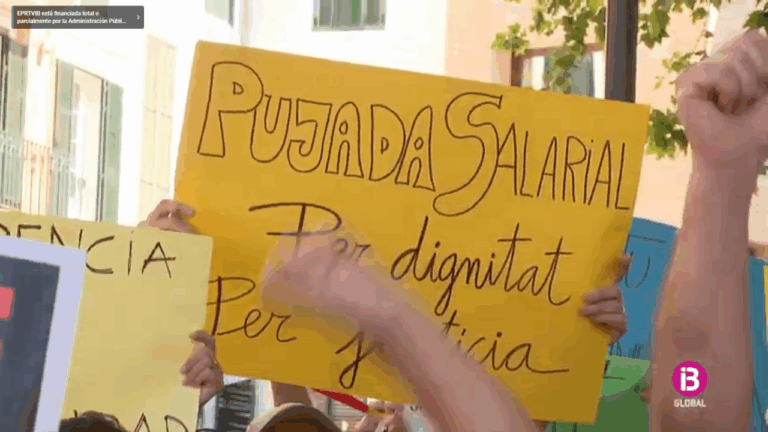 EPRTVIB está financiada total o
parcialmente por la Administración Públi...
PUJADA SALARIAL
Per dignitat
Per
ENCIA
U
iB
GLOBAL